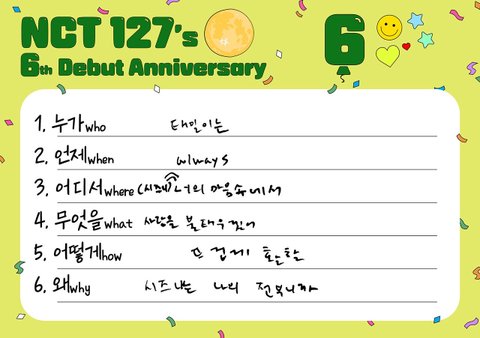 NCT 127's
6th Debut Anniversary
6
1. 누가who 태일이는
2. 언제when always
3. 어디서where (시즈니) 너의 마음속에서
4. 무엇을what 사랑을 불태우겠어
5. 어떻게how 뜨겁게 활활
6. 왜why 시즈니는 나의 전부니까